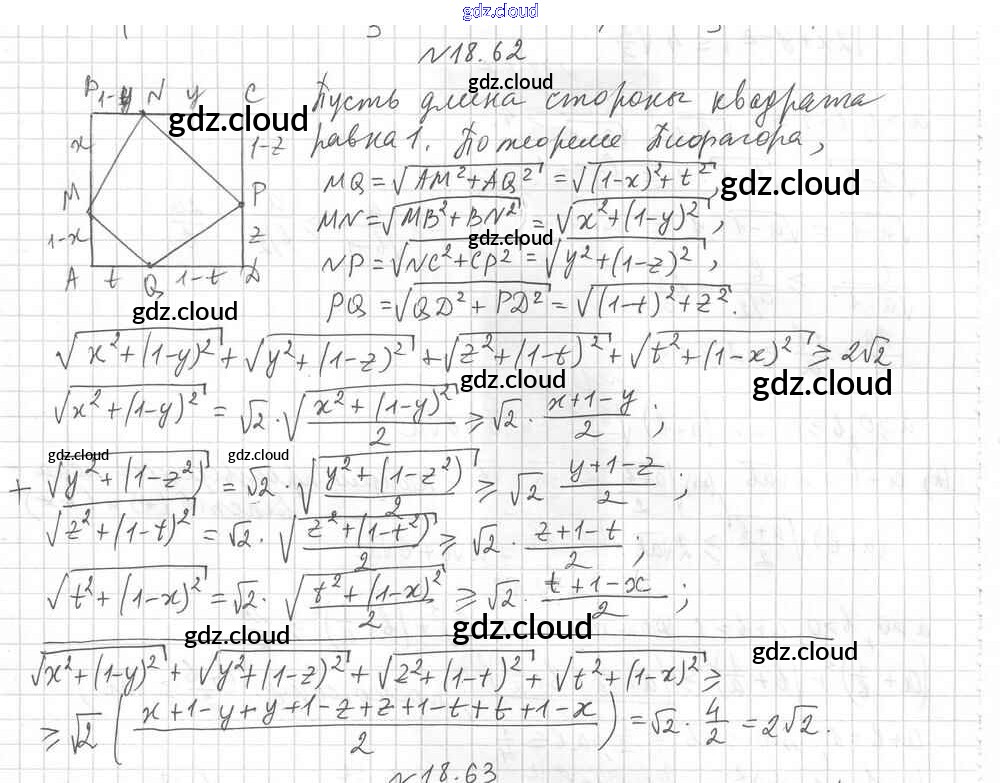 gdz.cloud
N 18.62
gdz.cloud
B 1-y N y C
Пусть длина стороны квадрата
gdz.cloud
x 1-z
равна 1. По теореме Пифагора,
MQ = √(AM² + AQ²) = √((1-x)² + t²),
gdz.cloud
M P
MN = √(MB² + BN²) = √(x² + (1-y)²),
gdz.cloud
1-x z
NP = √(NC² + CP²) = √(y² + (1-z)²),
A t Q 1-t D
PQ = √(QD² + PD²) = √((1-t)² + z²).
gdz.cloud
√(x² + (1-y)²) + √(y² + (1-z)²) + √(z² + (1-t)²) + √(t² + (1-x)²) ≥ 2√2
gdz.cloud gdz.cloud
√(x² + (1-y)²) = √2 · √((x² + (1-y)²)/2) ≥ √2 · (x+1-y)/2 ;
gdz.cloud gdz.cloud
+ √(y² + (1-z²)) = √2 · √((y² + (1-z²))/2) ≥ √2 (y+1-z)/2 ;
√(z² + (1-t)²) = √2 · √((z² + (1-t²))/2) ≥ √2 · (z+1-t)/2 ;
√(t² + (1-x)²) = √2 · √((t² + (1-x)²)/2) ≥ √2 · (t+1-x)/2 ;
gdz.cloud gdz.cloud gdz.cloud
√(x² + (1-y)²) + √(y² + (1-z)²) + √(z² + (1-t)²) + √(t² + (1-x)²) ≥
≥ √2 ((x+1-y+y+1-z+z+1-t+t+1-x)/2) = √2 · 4/2 = 2√2.
N 18.63